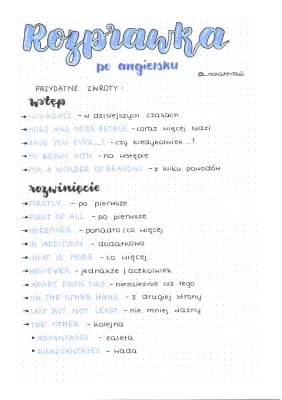 Rozprawka
po angielsku
PRZYDATNE ZWROTY:
wstęp
→ NOWADAYS - w dzisiejszych czasach
→ MORE AND MORE PEOPLE - coraz więcej ludzi
→ HAVE YOU EVER...? - czy kiedykolwiek ...?
→ TO BEGIN WITH - na wstępie
→ FOR A NUMBER OF REASONS - z kilku powodów
rozwinięcie
→ FIRSTLY - po pierwsze
→ FIRST OF ALL - po pierwsze
→ MOREOVER - ponadto / co więcej
→ IN ADDITION - dodatkowo
→ WHAT IS MORE - co więcej
→ HOWEVER - jednakże / aczkolwiek
→ APART FROM THIS - niezależnie od tego
→ ON THE OTHER HAND - z drugiej strony
→ LAST BUT NOT LEAST - nie mniej ważny
→ THE OTHER - kolejna
• ADVANTAGES - zaleta
• DISADVANTAGES - wada